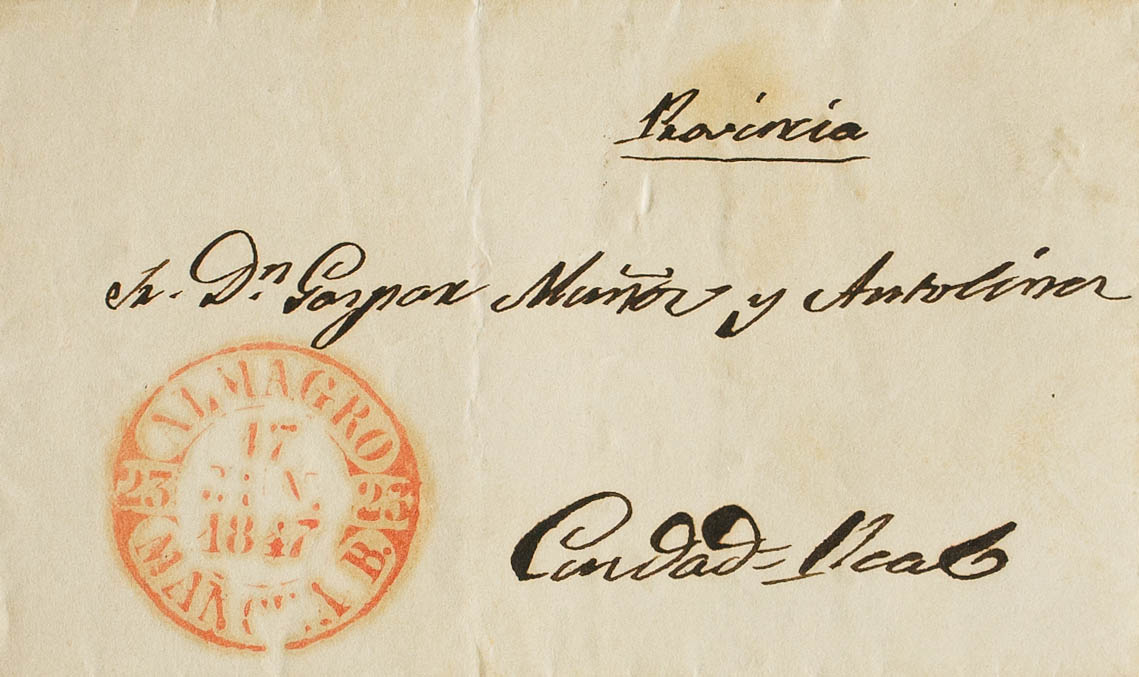 Provincia
Sr. Dn. Gaspar Muñoz y Antolinez
ALMAGRO
17
1847
23 23
Ciudad=Real